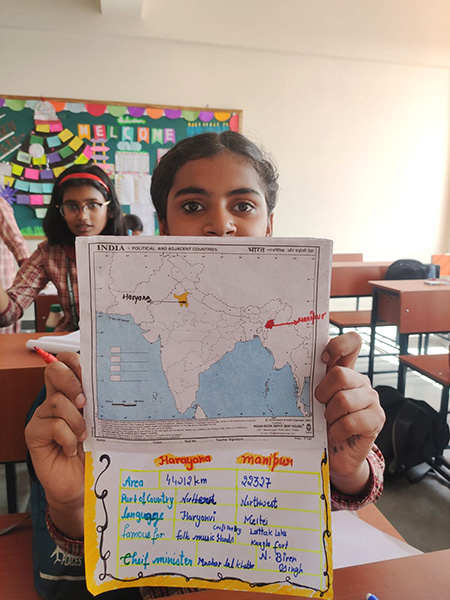 WELCOME
INDIA - POLITICAL AND ADJACENT COUNTRIES भारत
Haryana
Manipur
INDIAN BOOK DEPOT (MAP HOUSE)
Harayana Manipur
Area 44012 km 22327
Part of Country Northwest
language Haryanvi Meitei
famous for folk music Loktak lake
Kangla fort
Cheif minister Manohar lal khattar N. Biren
Singh